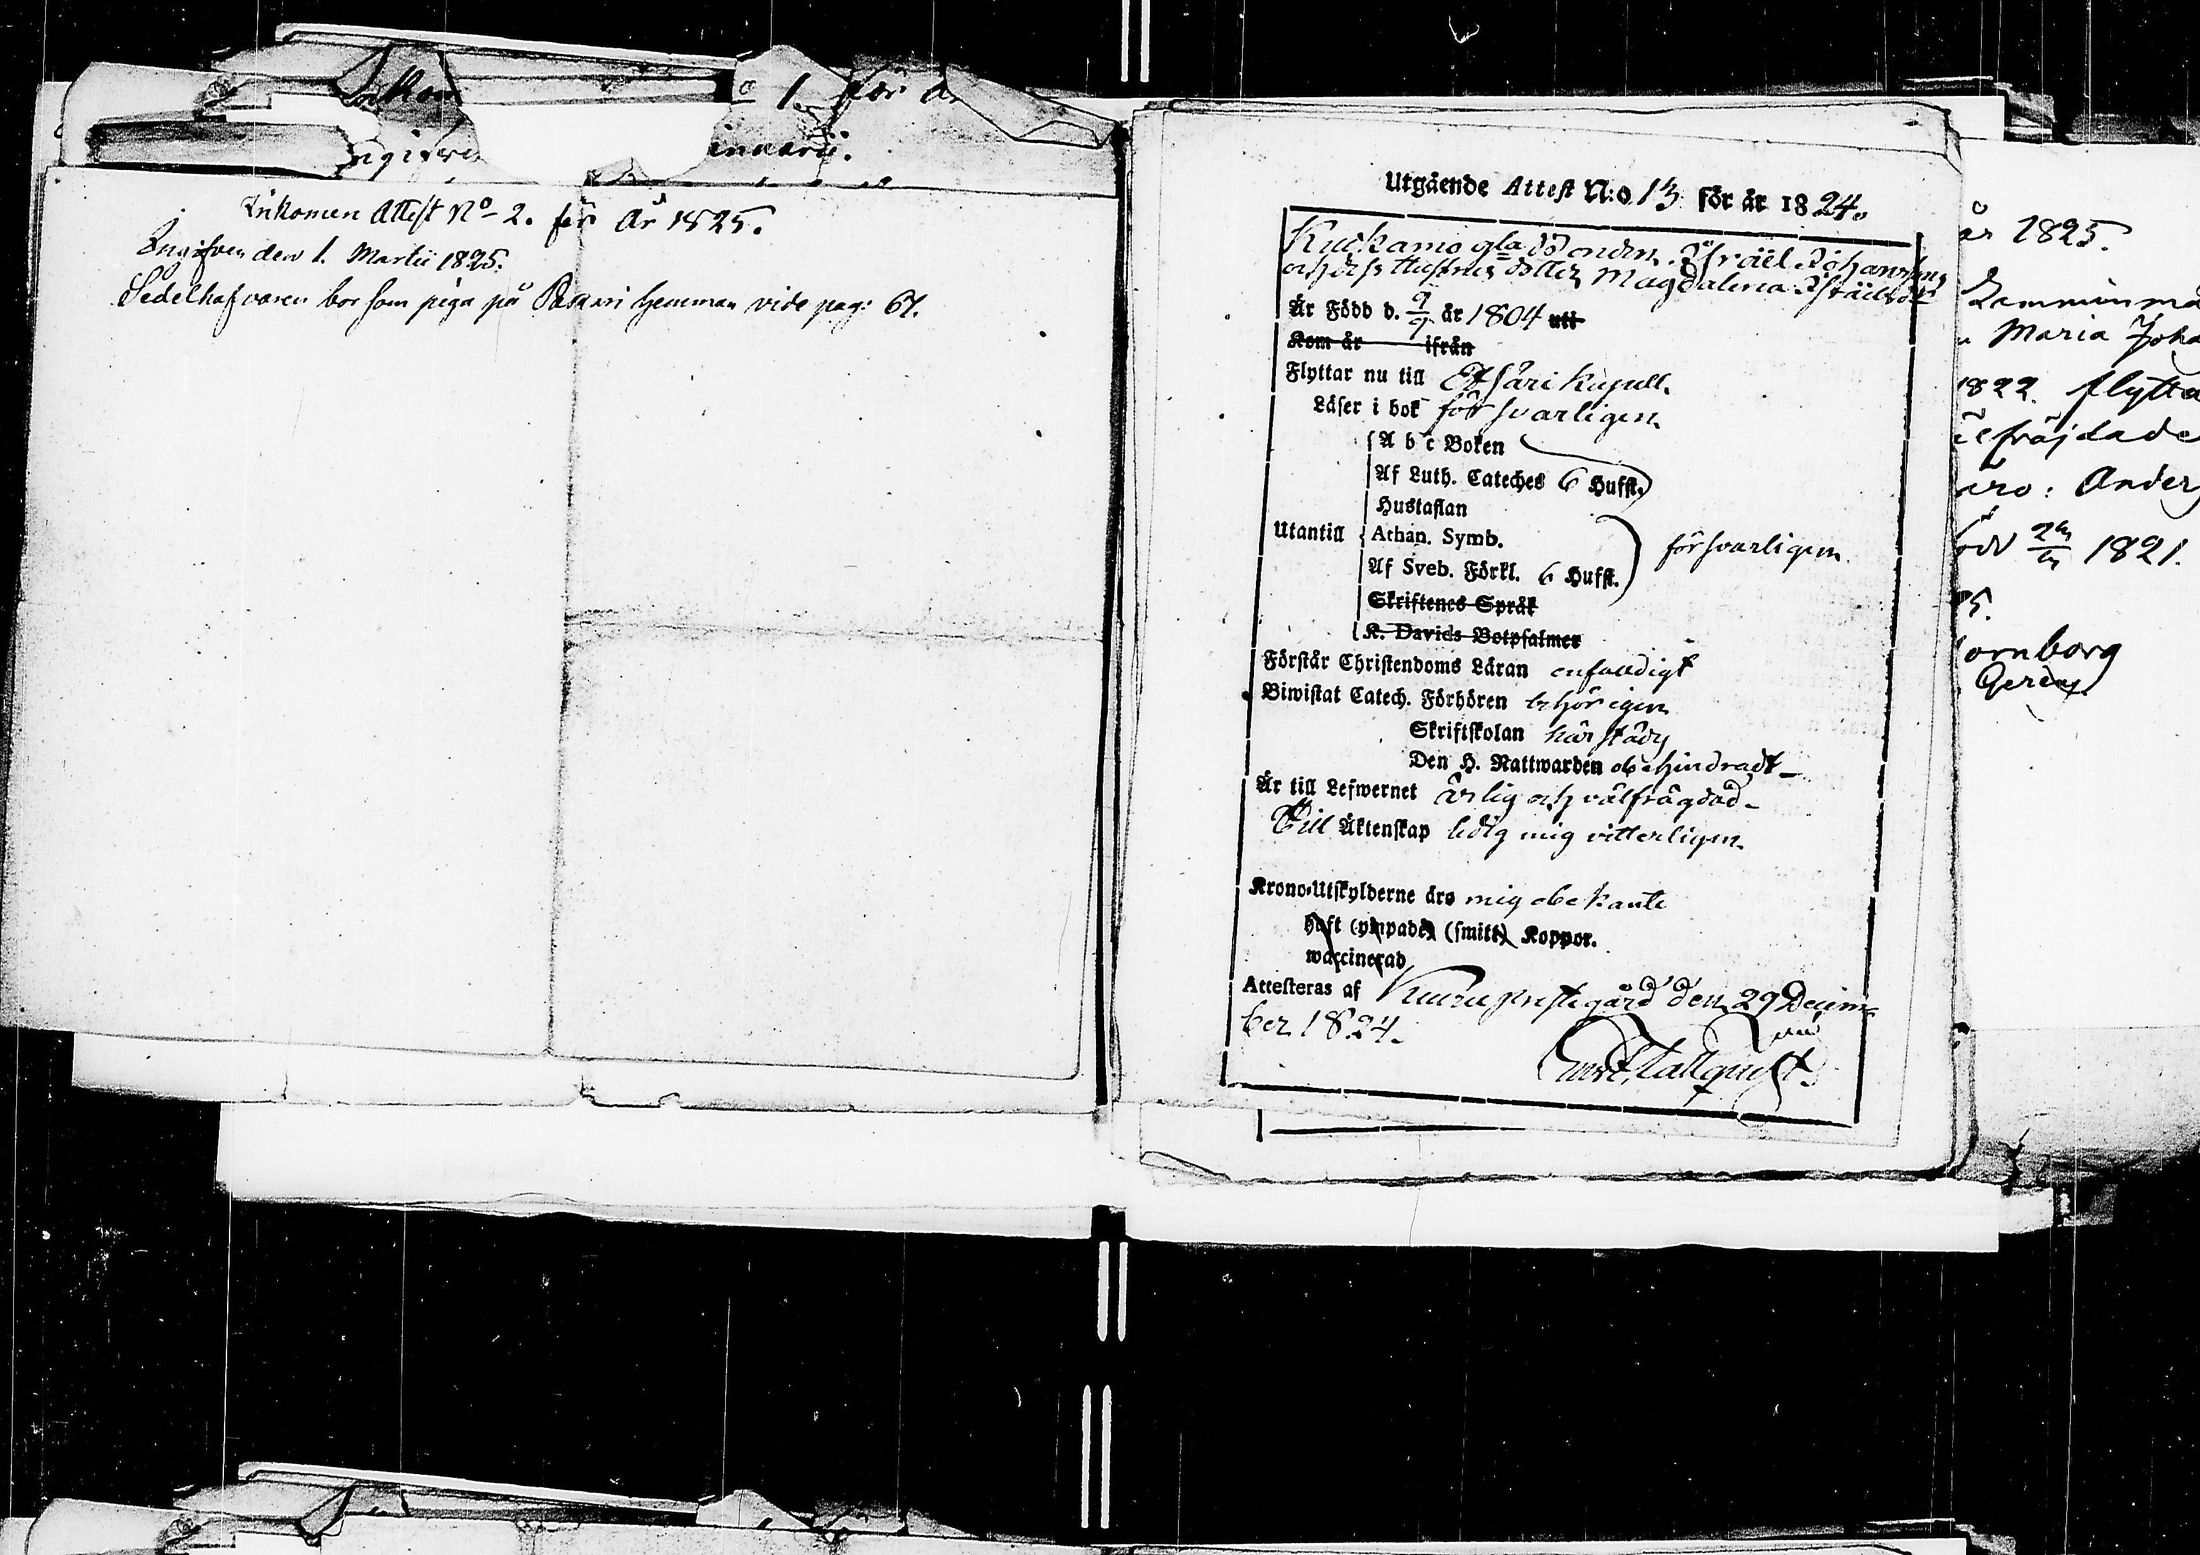 a 1. för
Inkomen Attest No 2. för År 1825.
Ingifven den 1. Martii 1825.
Sedelhafvaren bor som piga på hemman vide pag: 67.
Utgående Attest N:o 13 för år 1824.
Israël Johansson
och dess Hustrus dotter Magdalena
Är Född d. 9/9 år 1804 uti
Kom år ifrån
Flyttar nu till Etsäri Kapell.
Läser i bok försvarligen.
A b c Boken
Af Luth. Cateches 6 Hufst.
Hustaflan
Utantill Athan. Symb. försvarligen
Af Sveb. Förkl. 6 Hufst.
Skriftenes Språk
K. Davids Botpsalmer
Förstår Christendoms Läran enfaldigt
Biwistat Catech. Förhören behörigen
Skriftskolan härstädes
Den H. Nattwarden obehindradt
Är till Lefwernet ärlig och välfrägdad
Till Äktenskap ledig mig vitterligen.
Krono-Utskylderne äro mig obekante
haft (ympade) (smitt) Koppor.
waccinerad
Attesteras af Kuru prestegård den 29 Decem-
ber 1824.
Tallquist.
år 1825.
Maria Joha
1822. flytta
Anders
1821.
ornborg